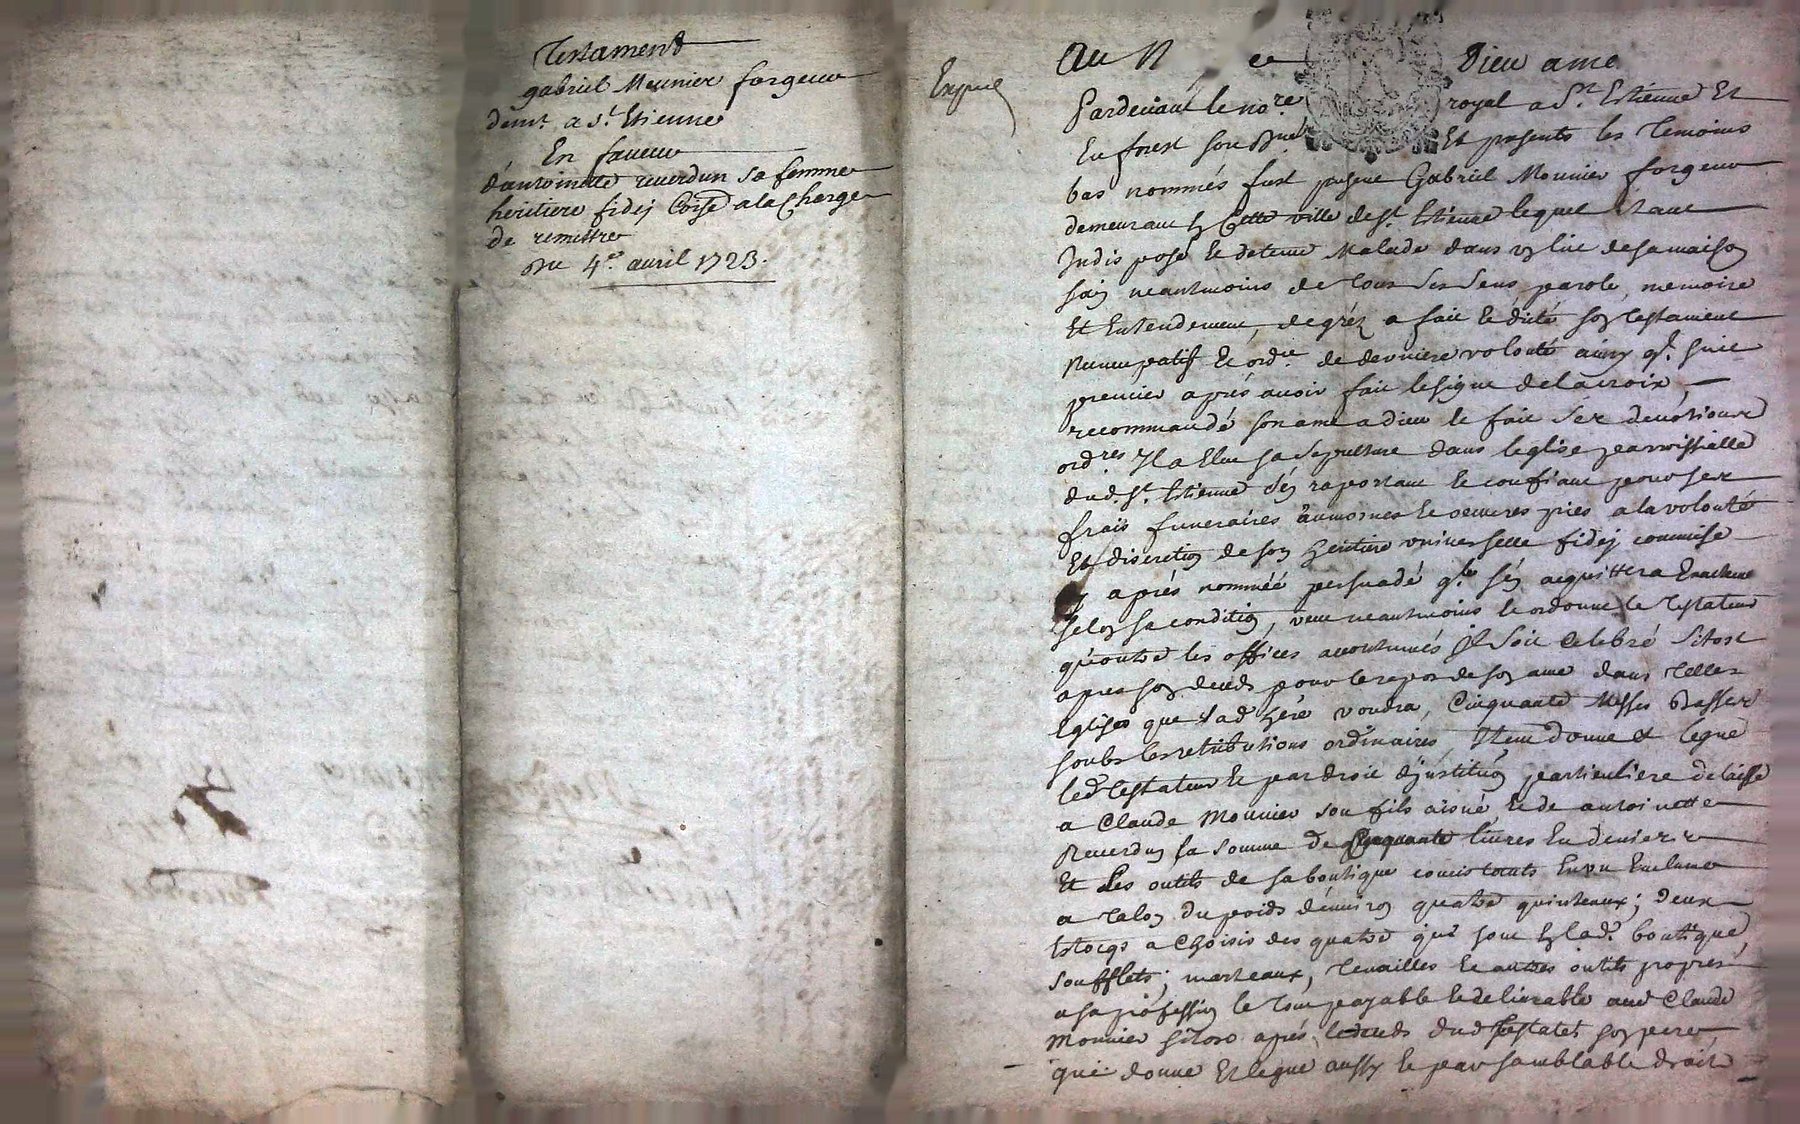 Testament
gabriel Meunier forgeur
demt. a St. Etienne
En faveur
d'antoinette reverdun sa femme
heritiere fidej Corse a la Charge
de remettre
Du 4e. avril 1723.
Expué
Au N Dieu ame
Pardevant le nore royal a St. Estienne Et
En forest soussigné Et presents les Temoins
bas nommés fust present Gabriel Mounier forgeur
demeurant en Cette ville de St. Estienne lequel Etant
Indisposé Et detenu Malade dans un lit de sa maison
sain neantmoins de tous ses sens parole, memoire
Et Entendement, de gréz a fait Et dicté son Testament
Nuncupatif Et ordre. de derniere volonté ainsy q. suit
premier aprés avoir fait le signe de la croix,
recommandé son ame a dieu Et fait ses devotions
ordres. Il a Elue sa sepulture dans leglise parroissialle
dud. St. Estienne s'en raportant Et confiant pour ses
frais funeraires aumosnes Et oeuvres pies a la volonté
Et discretion de son heritiere universelle fidej commise
aprés nommée persuadé q.le s'en acquittera
selon sa condition, veut neantmoins Et ordonne le Testateur
qu'outre les offices accoutumés Il soit Celebré sitost
apres son decéds pour le repos de son ame dans Telles
Eglises que lad. here voudra, Cinquante Messes Basses
soubs les retributions ordinaires, Item donne et legue
led. Testateur Et par droit d'jnstitution particuliere delaisse
a Claude Mounier son fils aisné Et de antoinette
Reverdun la somme de Cinquante livres En deniers
Et Les outils de sa boutique concistants En un Enclume
a Talon du poids d'environ quatre quinteaux; deux
Estocqs a Choisir des quatre qui sont en lad. boutique
soufflets; marteaux, Tenailles Et autres outils propres
a sa profession le tout payable Et delivrable aud. Claude
Mounier sitost aprés le deceds dud. Testatet. son pere
qui donne Et legue aussy Et par samblable droit